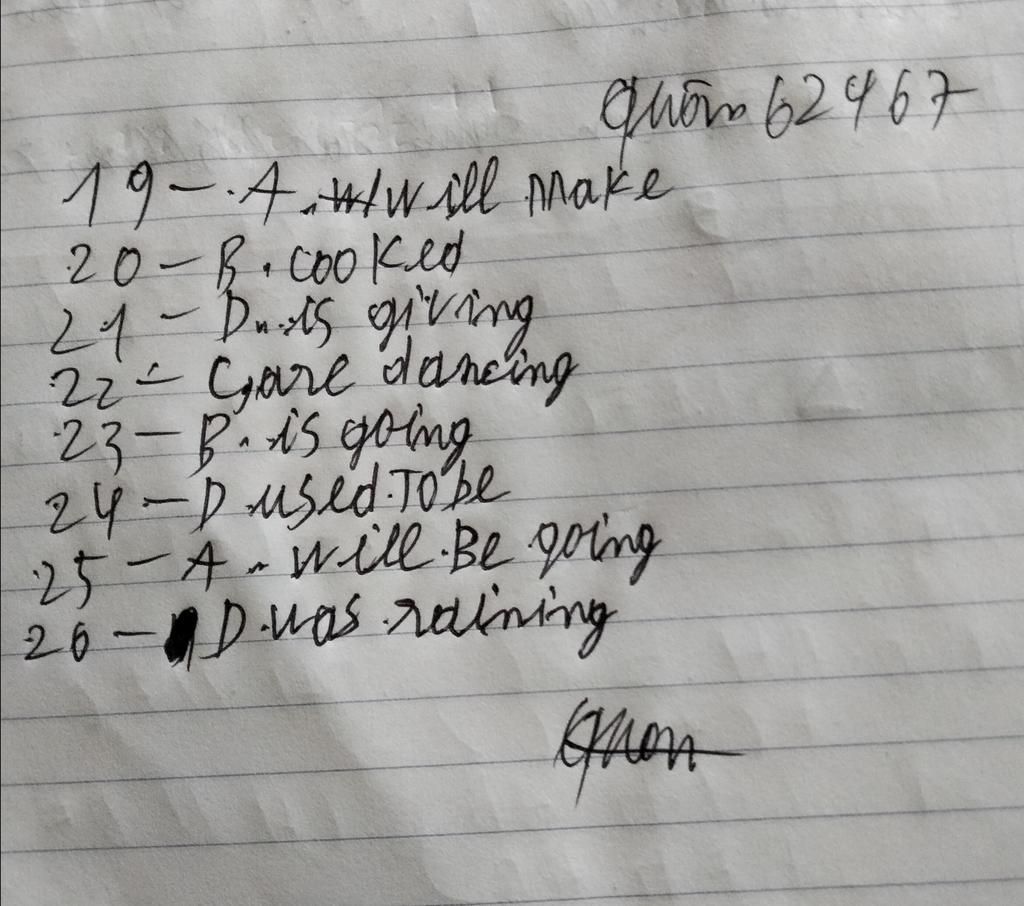 62467
19 - A. will make
20 - B. cooked
21 - D. is giving
22 - C, are dancing
23 - B. is going
24 - D used To be
25 - A. will Be going
26 - D. was raining